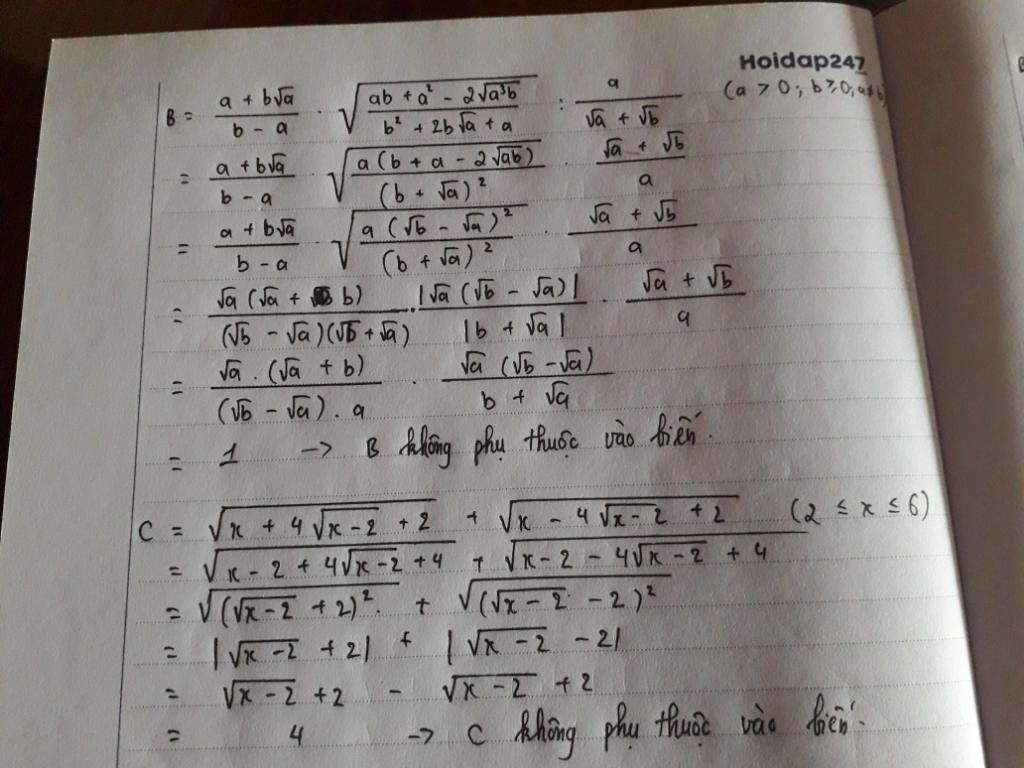 Hoidap247
B = (a + b√a)/(b - a) · √((ab + a² - 2√(a³b))/(b² + 2b√a + a)) : a/(√a + √b) (a > 0; b ≥ 0; a ≠ b)
= (a + b√a)/(b - a) · √(a(b + a - 2√(ab))/(b + √a)²) · (√a + √b)/a
= (a + b√a)/(b - a) · √(a(√b - √a)²/(b + √a)²) · (√a + √b)/a
= √a(√a + b)/((√b - √a)(√b + √a)) · |√a(√b - √a)|/|b + √a| · (√a + √b)/a
= √a . (√a + b)/((√b - √a) . a) · √a(√b - √a)/(b + √a)
= 1 -> B không phụ thuộc vào biến.
C = √(x + 4√(x-2) + 2) + √(x - 4√(x-2) + 2) (2 ≤ x ≤ 6)
= √(x - 2 + 4√(x-2) + 4) + √(x - 2 - 4√(x-2) + 4)
= √((√(x-2) + 2)²) + √((√(x-2) - 2)²)
= |√(x-2) + 2| + |√(x-2) - 2|
= √(x-2) + 2 - √(x-2) + 2
= 4 -> C không phụ thuộc vào biến.